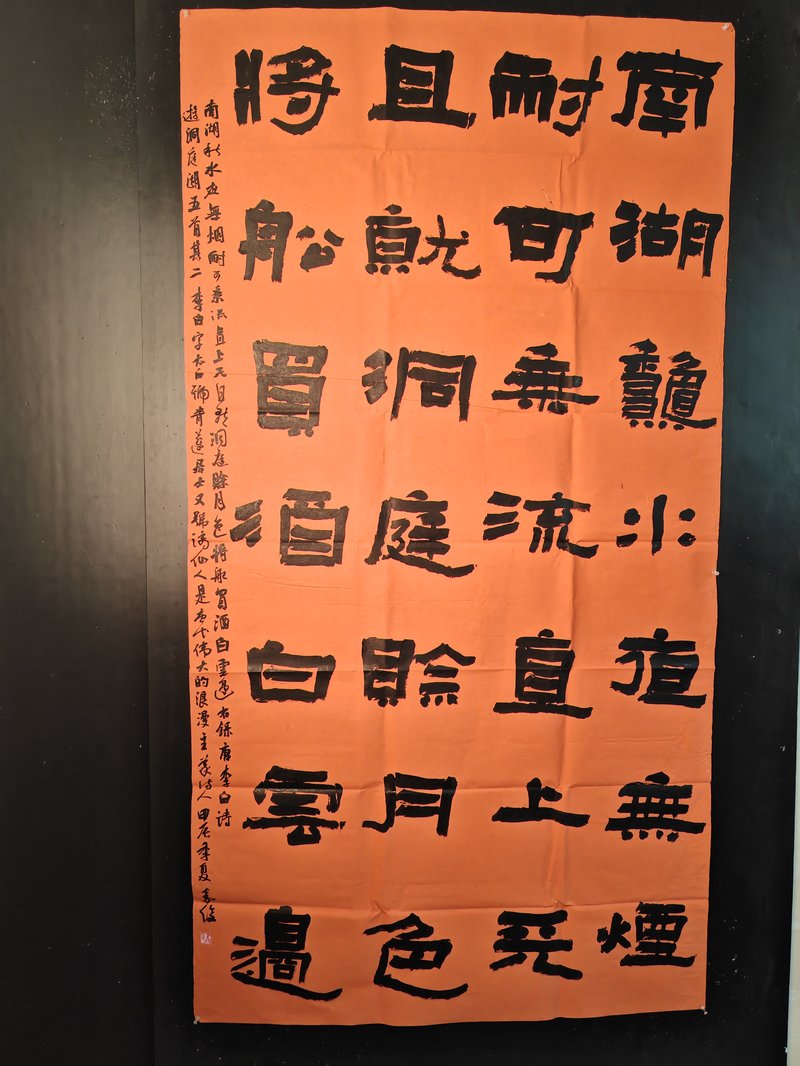 南湖龝水夜無煙
耐可乘流直上天
且就洞庭賒月色
將船買酒白雲邊
南湖秋水夜無烟耐可乘流直上天且就洞庭賒月色將船買酒白雲邊右錄唐李白诗
遊洞庭湖五首其二李白字太白號青蓮居士又號謫仙人是唐代偉大的浪漫主義诗人甲辰季夏